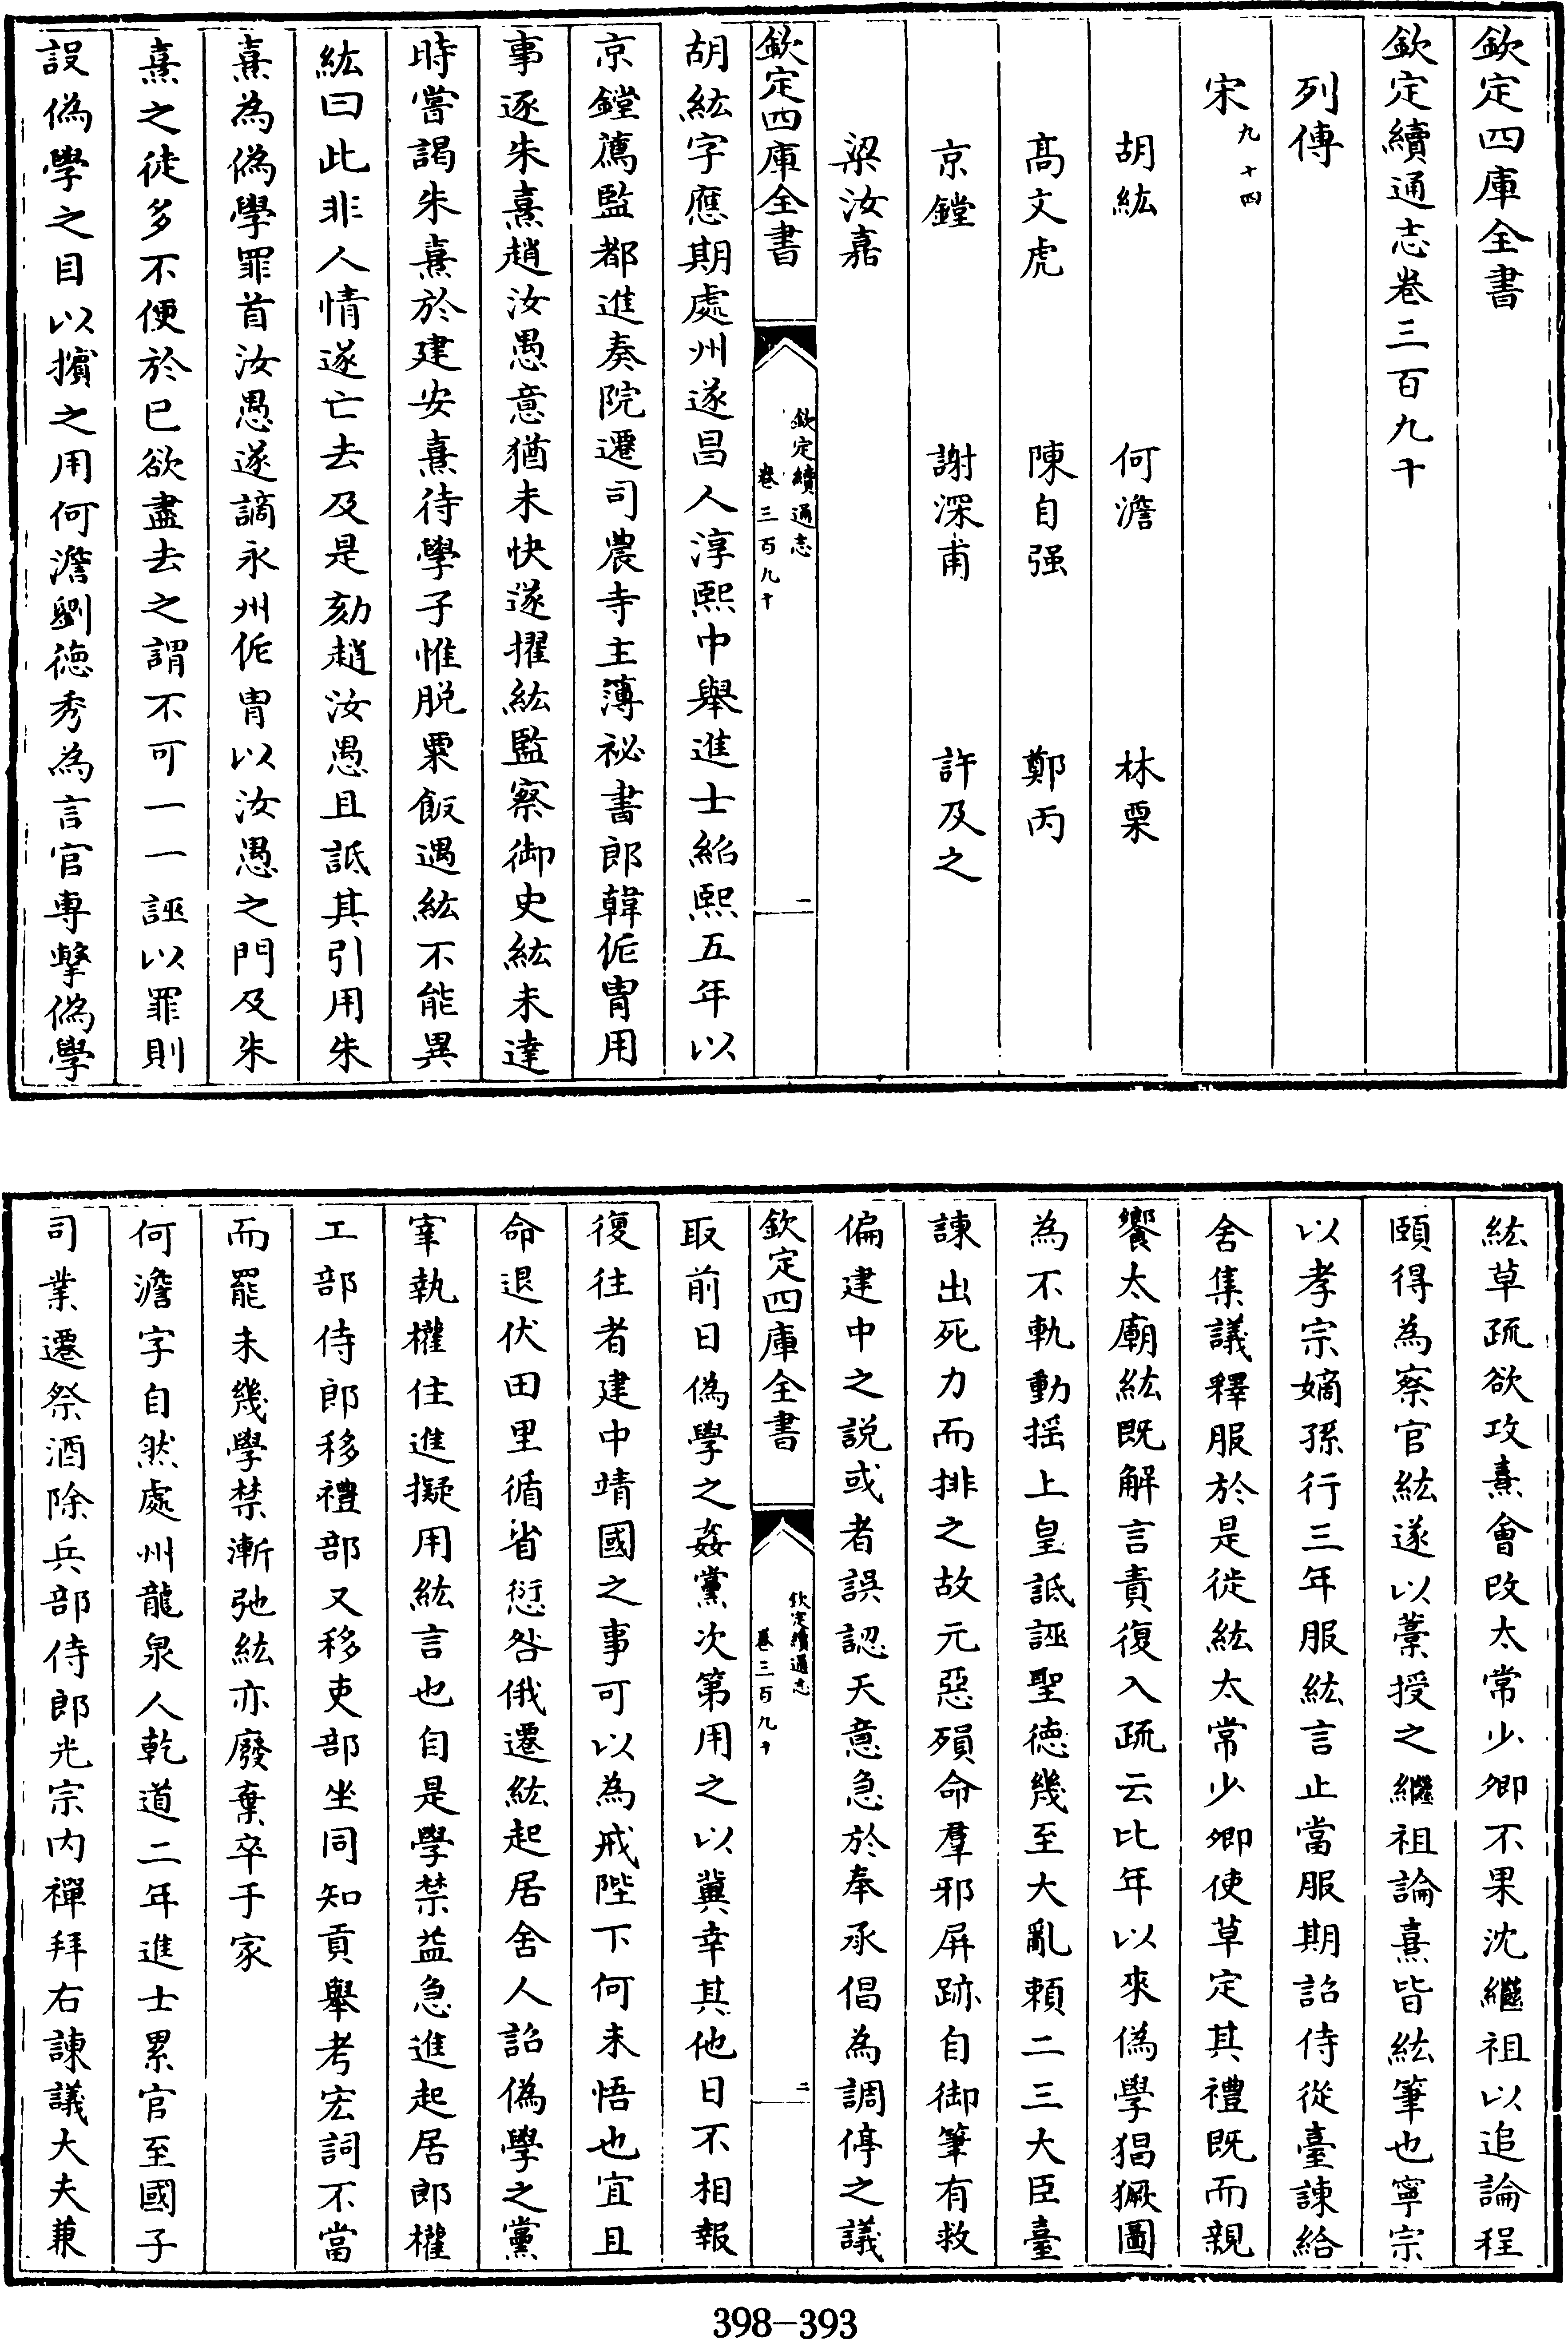 欽定四庫全書
欽定續通志卷三百九十
列傳
宋九十四
胡紘 何澹 林栗
高文虎 陳自强 鄭丙
京鏜 謝深甫 許及之
梁汝嘉
欽定四庫全書 欽定續通志 卷三百九十 一
胡紘字應期處州遂昌人淳熙中舉進士紹熙五年以
京鏜薦監都進奏院遷司農寺主簿祕書郎韓侂胄用
事逐朱熹趙汝愚意猶未快遂擢紘監察御史紘未達
時嘗謁朱熹於建安熹待學子惟脫粟飯遇紘不能異
紘曰此非人情遂亡去及是劾趙汝愚且詆其引用朱
熹為偽學罪首汝愚遂謫永州侂胄以汝愚之門及朱
熹之徒多不便於已欲盡去之謂不可一一誣以罪則
設偽學之目以擯之用何澹劉德秀為言官專擊偽學
紘草疏欲攻熹會改太常少卿不果沈繼祖以追論程
頤得為察官紘遂以藁授之繼祖論熹皆紘筆也寧宗
以孝宗嫡孫行三年服紘言止當服期詔侍從臺諫給
舍集議釋服於是徙紘太常少卿使草定其禮既而親
饗太廟紘既解言責復入疏云比年以來偽學猖獗圖
為不軌動揺上皇詆誣聖德幾至大亂賴二三大臣臺
諫出死力而排之故元惡殞命羣邪屏跡自御筆有救
偏建中之説或者誤認天意急於奉承倡為調停之議
欽定四庫全書 欽定續通志 卷三百九十 二
取前日偽學之姦黨次第用之以冀幸其他日不相報
復往者建中靖國之事可以為戒陛下何未悟也宜且
命退伏田里循省愆咎俄遷紘起居舍人詔偽學之黨
宰執權住進擬用紘言也自是學禁益急進起居郎權
工部侍郎移禮部又移吏部坐同知貢舉考宏詞不當
而罷未幾學禁漸弛紘亦廢棄卒于家
何澹字自然處州龍泉人乾道二年進士累官至國子
司業遷祭酒除兵部侍郎光宗内禪拜右諫議大夫兼
398-393